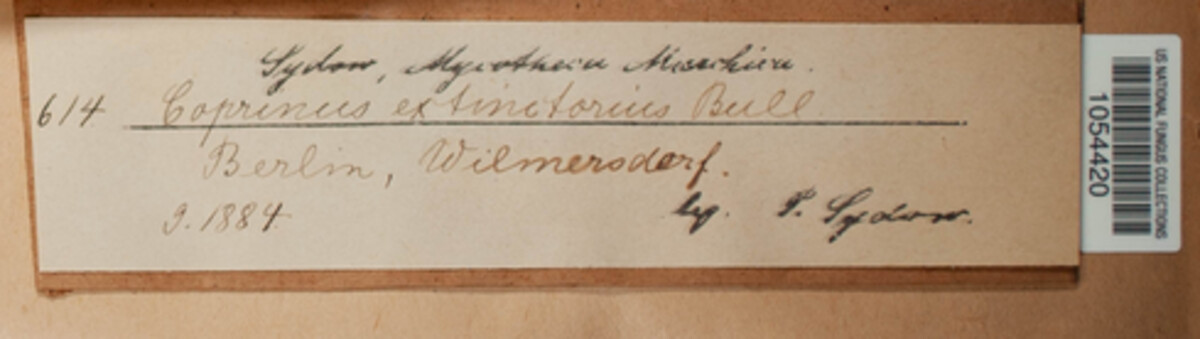 Sydow, Mycotheca Marchica.
614 Coprinus extinctorius Bull
Berlin, Wilmersdorf.
9. 1884.
leg. P. Sydow.
US NATIONAL FUNGUS COLLECTIONS
1054420